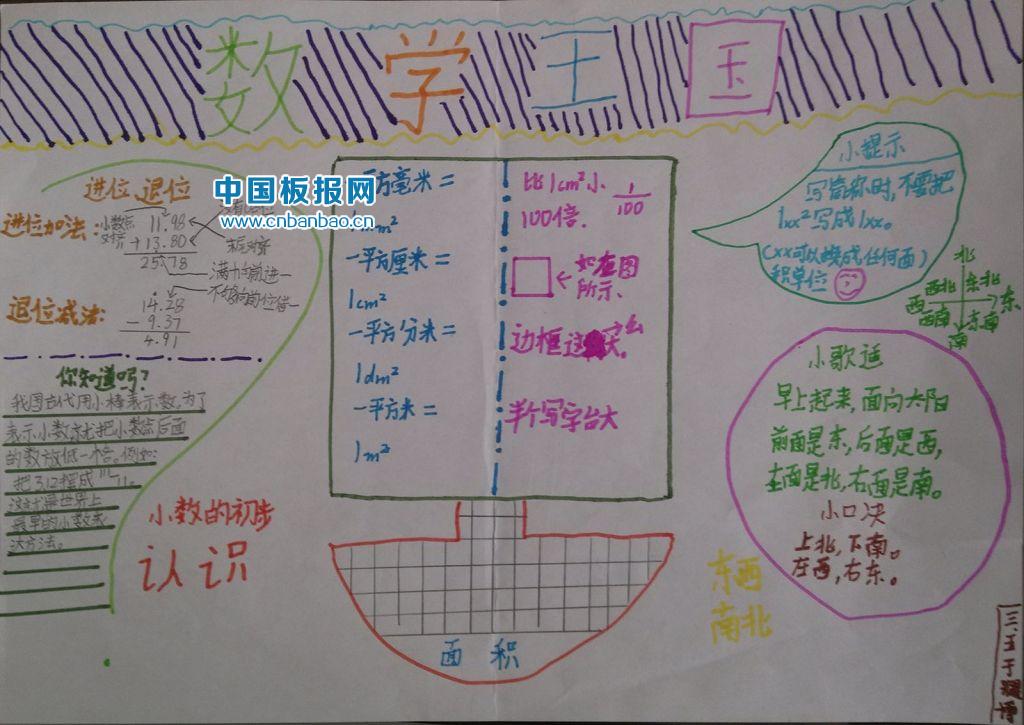 数学王国
进位、退位
中国板报网
www.cnbanbao.cn
进位加法:
小数点
对齐
11.98
+13.80
25.78
末尾对齐
满十向前进一
不够向前位借一
退位减法:
14.28
- 9.37
4.91
你知道吗?
我国古代用小棒表示数,为了
表示小数,就把小数点后面
的数放低一格。例如:
把3.12摆成
这就是世界上
最早的小数表
达方法。
小数的初步
认识
一平方毫米=
1mm²
一平方厘米=
1cm²
一平方分米=
1dm²
一平方米=
1m²
比1cm²小
100倍.
1/100
如左图
所示.
边框这么大.
半个写字台大
面积
小提示
写简称时,不要把
1xx²写成1xx。
(xx可以换成任何面
积单位)
北
西北 东北
西 东
西南 东南
南
小歌谣
早上起来,面向太阳
前面是东,后面是西,
左面是北,右面是南。
小口决
上北,下南。
左西,右东。
东西
南北
三.五于